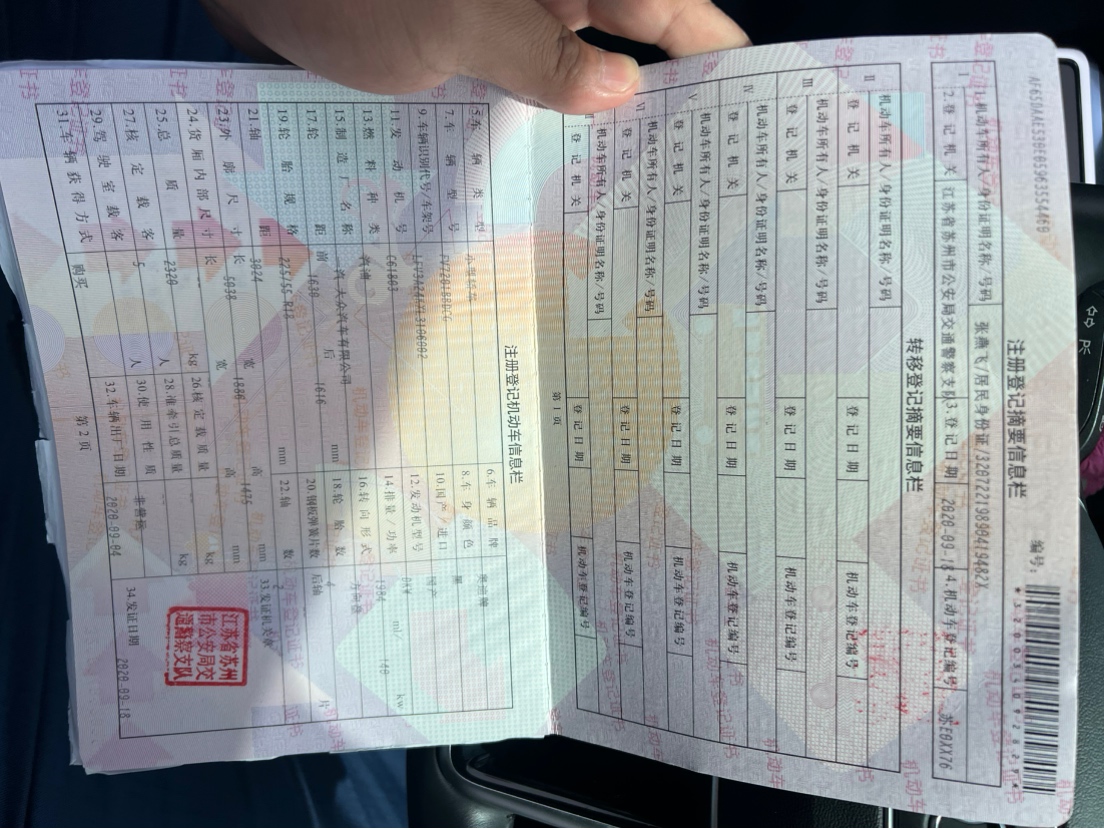 编号：
AF63DAAE539E0596355446D
注册登记摘要信息栏
Ⅰ 1.机动车所有人/身份证明名称/号码 张燕飞/居民身份证/32072219890419482X
2.登记机关 江苏省苏州市公安局交通警察支队 3.登记日期 2020-09-18 4.机动车登记编号 苏E0XX76
转移登记摘要信息栏
Ⅱ 机动车所有人/身份证明名称/号码
登记机关 登记日期 机动车登记编号
Ⅲ 机动车所有人/身份证明名称/号码
登记机关 登记日期 机动车登记编号
Ⅳ 机动车所有人/身份证明名称/号码
登记机关 登记日期 机动车登记编号
Ⅴ 机动车所有人/身份证明名称/号码
登记机关 登记日期 机动车登记编号
Ⅵ 机动车所有人/身份证明名称/号码
登记机关 登记日期 机动车登记编号
机动车所有人/身份证明名称/号码
登记机关 登记日期 机动车登记编号
第1页
注册登记机动车信息栏
5.车辆类型 6.车辆品牌
7.车辆型号 8.车身颜色 黑
9.车辆识别代号/车架号 10.国产/进口 国产
11.发动机号 C61803 12.发动机型号
13.燃料种类 汽油 14.排量/功率 1984 ml/ 140 kw
15.制造厂名称 一汽大众汽车有限公司 16.转向形式 方向盘
17.轮距 前 1630 后 1616 mm 18.轮胎数 4
19.轮胎规格 225/55 R18 20.钢板弹簧片数 后轴 片
21.轴距 3024 mm 22.轴数 2
23.外廓尺寸 长 5038 宽 1886 高 1475 mm 33.发证机关章
24.货厢内部尺寸 长 宽 高 mm
25.总质量 2320 kg 26.核定载质量 kg
27.核定载客 5 人 28.准牵引总质量 kg
29.驾驶室载客 人 30.使用性质 非营运
31.车辆获得方式 购买 32.车辆出厂日期 2020-09-04 34.发证日期 2020-09-18
江苏省苏州
市公安局交
通警察支队
第2页